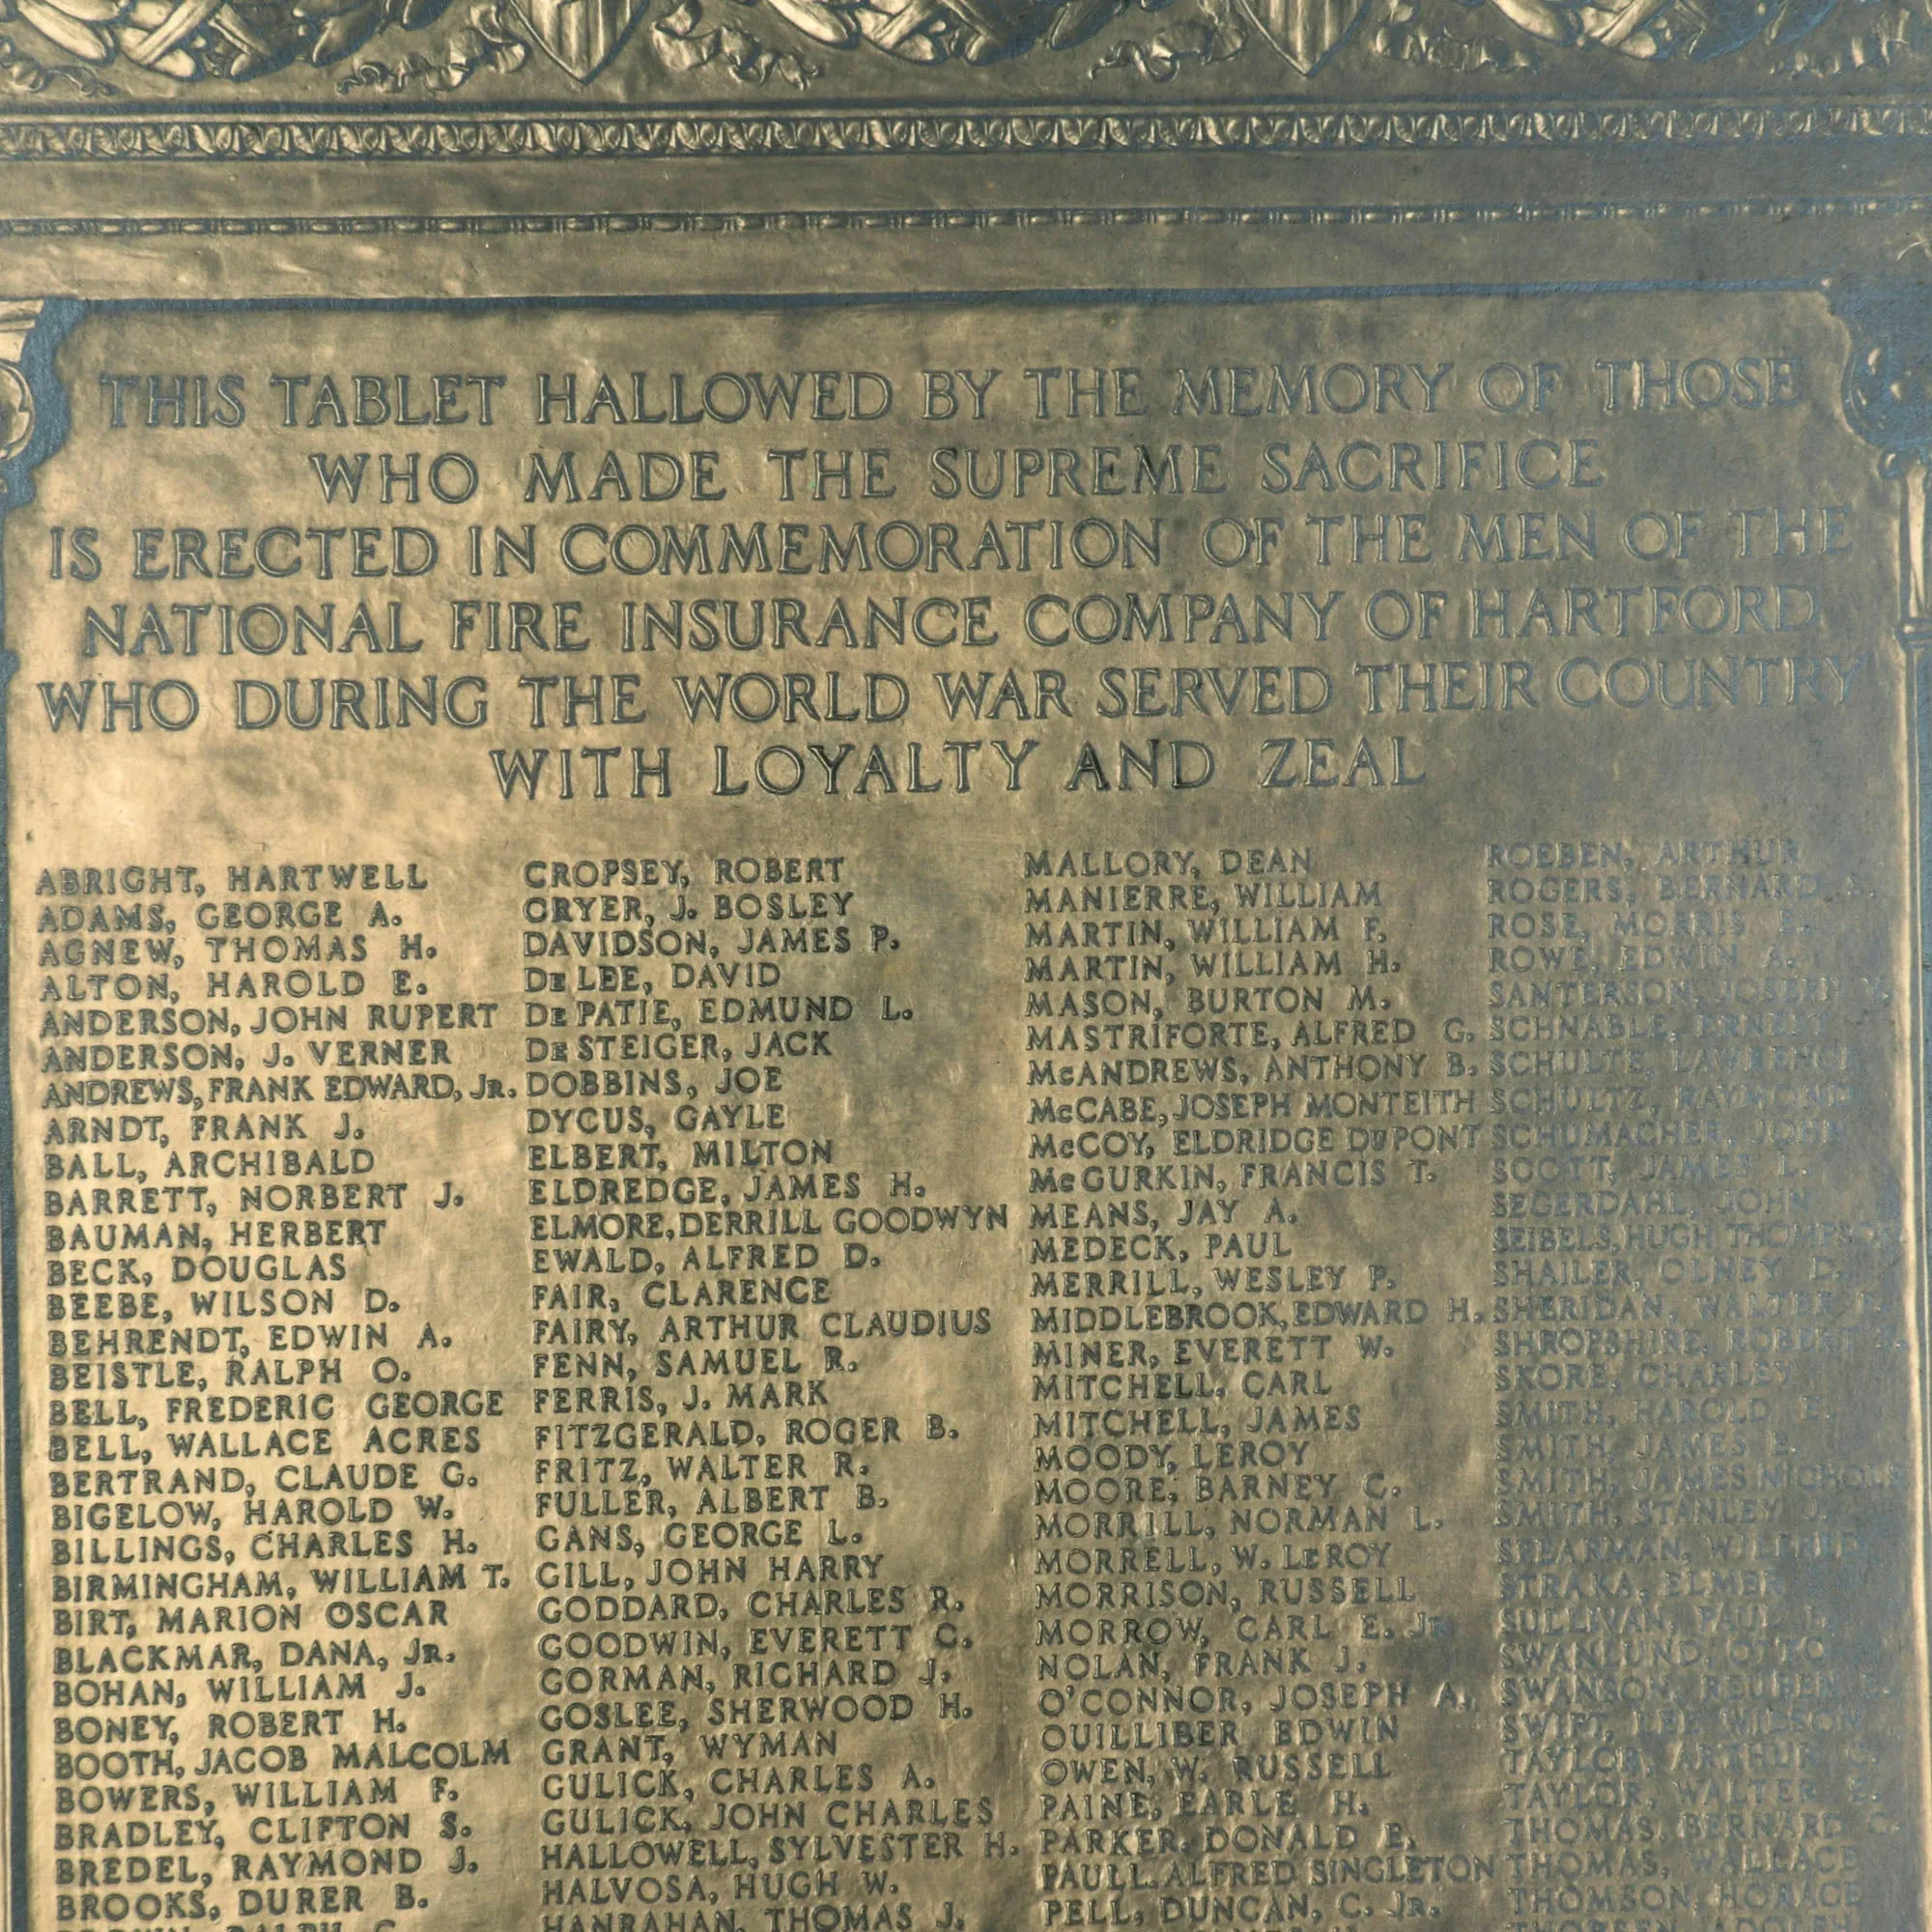 THIS TABLET HALLOWED BY THE MEMORY OF THOSE
WHO MADE THE SUPREME SACRIFICE
IS ERECTED IN COMMEMORATION OF THE MEN OF THE
NATIONAL FIRE INSURANCE COMPANY OF HARTFORD
WHO DURING THE WORLD WAR SERVED THEIR COUNTRY
WITH LOYALTY AND ZEAL
ABRIGHT, HARTWELL
ADAMS, GEORGE A.
AGNEW, THOMAS H.
ALTON, HAROLD E.
ANDERSON, JOHN RUPERT
ANDERSON, J. VERNER
ANDREWS, FRANK EDWARD, JR.
ARNDT, FRANK J.
BALL, ARCHIBALD
BARRETT, NORBERT J.
BAUMAN, HERBERT
BECK, DOUGLAS
BEEBE, WILSON D.
BEHRENDT, EDWIN A.
BEISTLE, RALPH O.
BELL, FREDERIC GEORGE
BELL, WALLACE ACRES
BERTRAND, CLAUDE G.
BIGELOW, HAROLD W.
BILLINGS, CHARLES H.
BIRMINGHAM, WILLIAM T.
BIRT, MARION OSCAR
BLACKMAR, DANA, JR.
BOHAN, WILLIAM J.
BONEY, ROBERT H.
BOOTH, JACOB MALCOLM
BOWERS, WILLIAM F.
BRADLEY, CLIFTON S.
BREDEL, RAYMOND J.
BROOKS, DURER B.
CROPSEY, ROBERT
CRYER, J. BOSLEY
DAVIDSON, JAMES P.
DE LEE, DAVID
DE PATIE, EDMUND L.
DE STEIGER, JACK
DOBBINS, JOE
DYCUS, GAYLE
ELBERT, MILTON
ELDREDGE, JAMES H.
ELMORE, DERRILL GOODWYN
EWALD, ALFRED D.
FAIR, CLARENCE
FAIRY, ARTHUR CLAUDIUS
FENN, SAMUEL R.
FERRIS, J. MARK
FITZGERALD, ROGER B.
FRITZ, WALTER R.
FULLER, ALBERT B.
GANS, GEORGE L.
GILL, JOHN HARRY
GODDARD, CHARLES R.
GOODWIN, EVERETT C.
GORMAN, RICHARD J.
GOSLEE, SHERWOOD H.
GRANT, WYMAN
GULICK, CHARLES A.
GULICK, JOHN CHARLES
HALLOWELL, SYLVESTER H.
HALVOSA, HUGH W.
HANRAHAN, THOMAS J.
MALLORY, DEAN
MANIERRE, WILLIAM
MARTIN, WILLIAM F.
MARTIN, WILLIAM H.
MASON, BURTON M.
MASTRIFORTE, ALFRED G.
McANDREWS, ANTHONY B.
McCABE, JOSEPH MONTEITH
McCOY, ELDRIDGE DUPONT
McGURKIN, FRANCIS T.
MEANS, JAY A.
MEDECK, PAUL
MERRILL, WESLEY P.
MIDDLEBROOK, EDWARD H.
MINER, EVERETT W.
MITCHELL, CARL
MITCHELL, JAMES
MOODY, LEROY
MOORE, BARNEY C.
MORRILL, NORMAN L.
MORRELL, W. LEROY
MORRISON, RUSSELL
MORROW, CARL E. JR
NOLAN, FRANK J.
O'CONNOR, JOSEPH A.
OUILLIBER EDWIN
OWEN, W. RUSSELL
PAINE, EARLE H.
PARKER, DONALD E.
PAULL, ALFRED SINGLETON
PELL, DUNCAN, C. JR.
ROEBEN, ARTHUR
ROGERS, BERNARD S.
ROSE, MORRIS
ROWE, EDWIN A.
SANTERSON, JOSEPH
SCHNABLE, ERNEST
SCHULTE, LAWRENCE
SCHULTZ, RAYMOND
SCHUMACHER, JOHN
SCOTT, JAMES L.
SEGERDAHL, JOHN
SEIBELS, HUGH THOMPSON
SHAILER, OLNEY D.
SHERIDAN, WALTER
SHROPSHIRE, ROBERT
SKORE, CHARLEY
SMITH, HAROLD
SMITH, JAMES
SMITH, JAMES NICHOLS
SMITH, STANLEY J.
SPEARMAN, WILFRED
STRAKA, ELMER
SULLIVAN, PAUL
SWANLUND, OTTO
SWANSON, REUBEN
SWIFT, LEE WILSON
TAYLOR, ARTHUR
TAYLOR, WALTER
THOMAS, BERNARD C.
THOMAS, WALLACE
THOMSON, HORACE